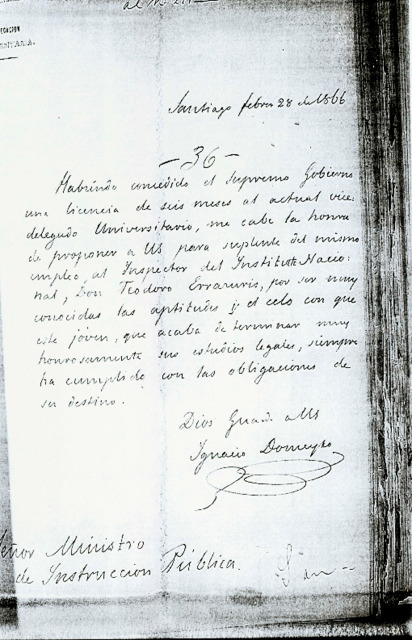 al N
EGACION
ENTARIA.
Santiago febro 28 de 1866
— 36 —
Habiendo concedido el Supremo Gobierno
una licencia de seis meses al actual vice-
delegado Universitario, me cabe la honra
de proponer a US para suplente del mismo
empleo, al Inspector del Instituto Nacio:
nal, Don Teodoro Errazuris, por ser muy
conocidas las aptitudes y el celo con que
este jóven, que acaba de terminar muy
honrosamente sus estudios legales, siempre
ha cumplido con las obligaciones de
su destino.
Dios Guarde a US
Ignacio Domeyko
eñor Ministro
de Instruccion Pública.